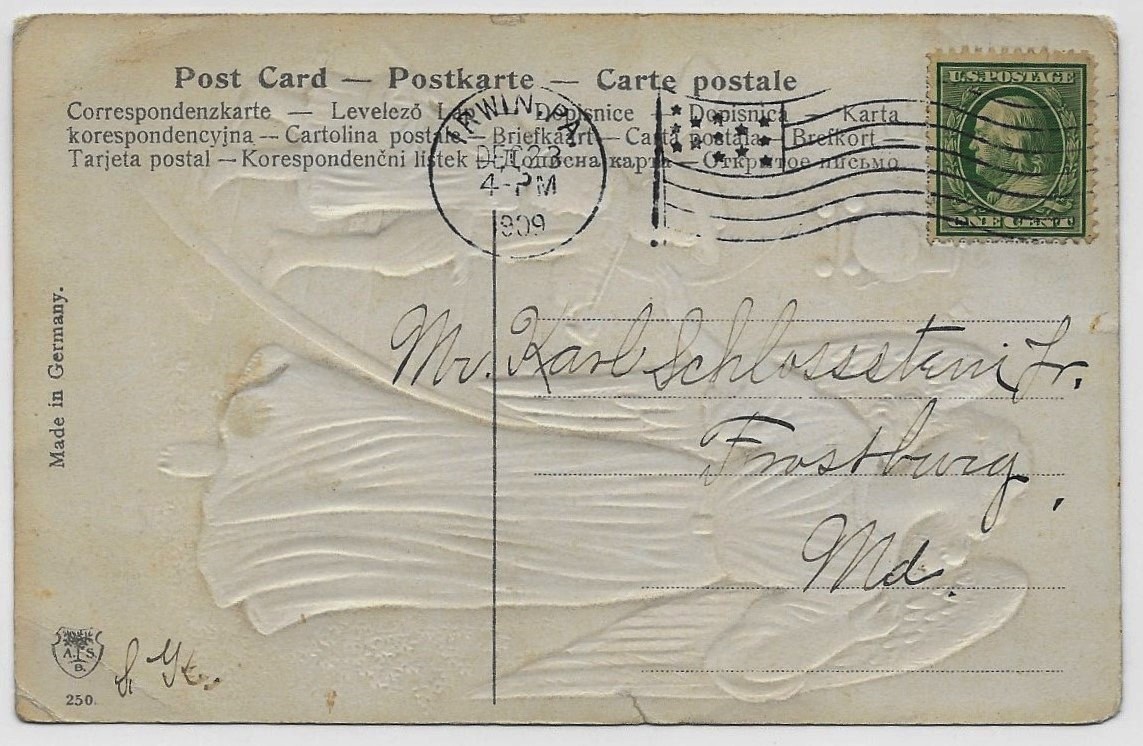 Post Card — Postkarte — Carte postale
Correspondenzkarte — Levelező L — Dopisnice — Dopisnica — Karta
korespondencyjna — Cartolina postale — Briefkaart — Carta postala — Brefkort —
Tarjeta postal — Korespondenční listek — Дописна карта — Открытое письмо
IRWIN, PA.
DEC 23
4-PM
1909
U.S. POSTAGE
ONE CENT
Made in Germany.
Mr. Karl Schlossstein Jr.
Frostburg,
Md.
A. S.
B.
250.